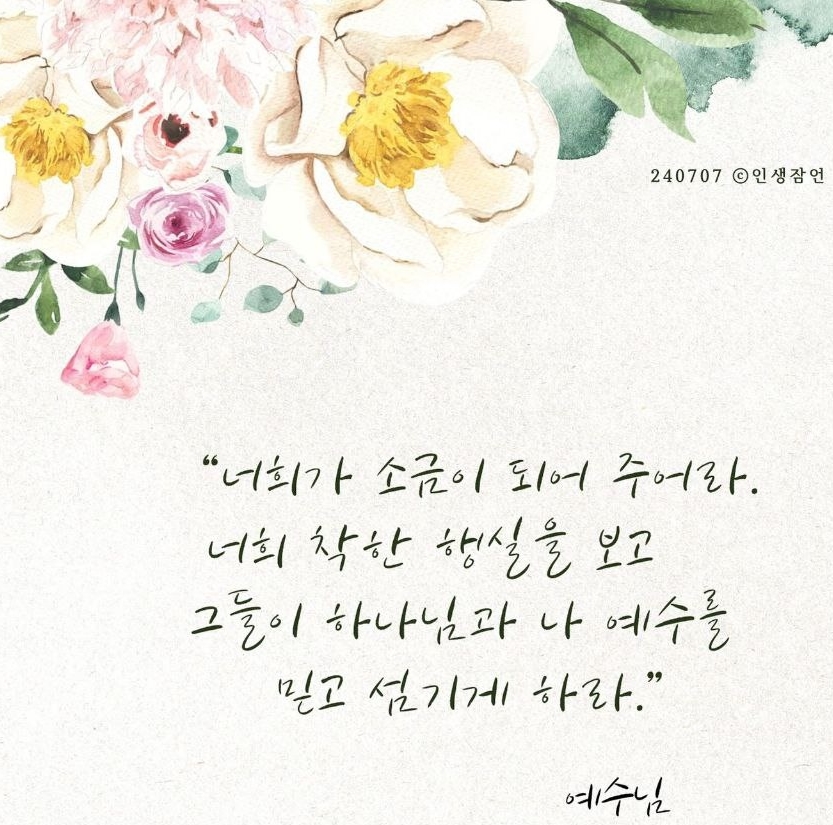 240707 ⓒ인생잠언
“너희가 소금이 되어 주어라.
너희 착한 행실을 보고
그들이 하나님과 나 예수를
믿고 섬기게 하라.”
예수님